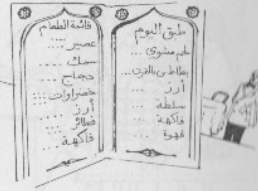 طبق اليوم
لحم مشوي ...
بطاطس بالفرن...
أرز ...
سلطه ...
فاكهة ...
قهوة ...
قائمة الطعام
عصير ....
سمك .....
دجاج ....
خضراوات ....
أرز ....
فطائر ....
فاكهة ...